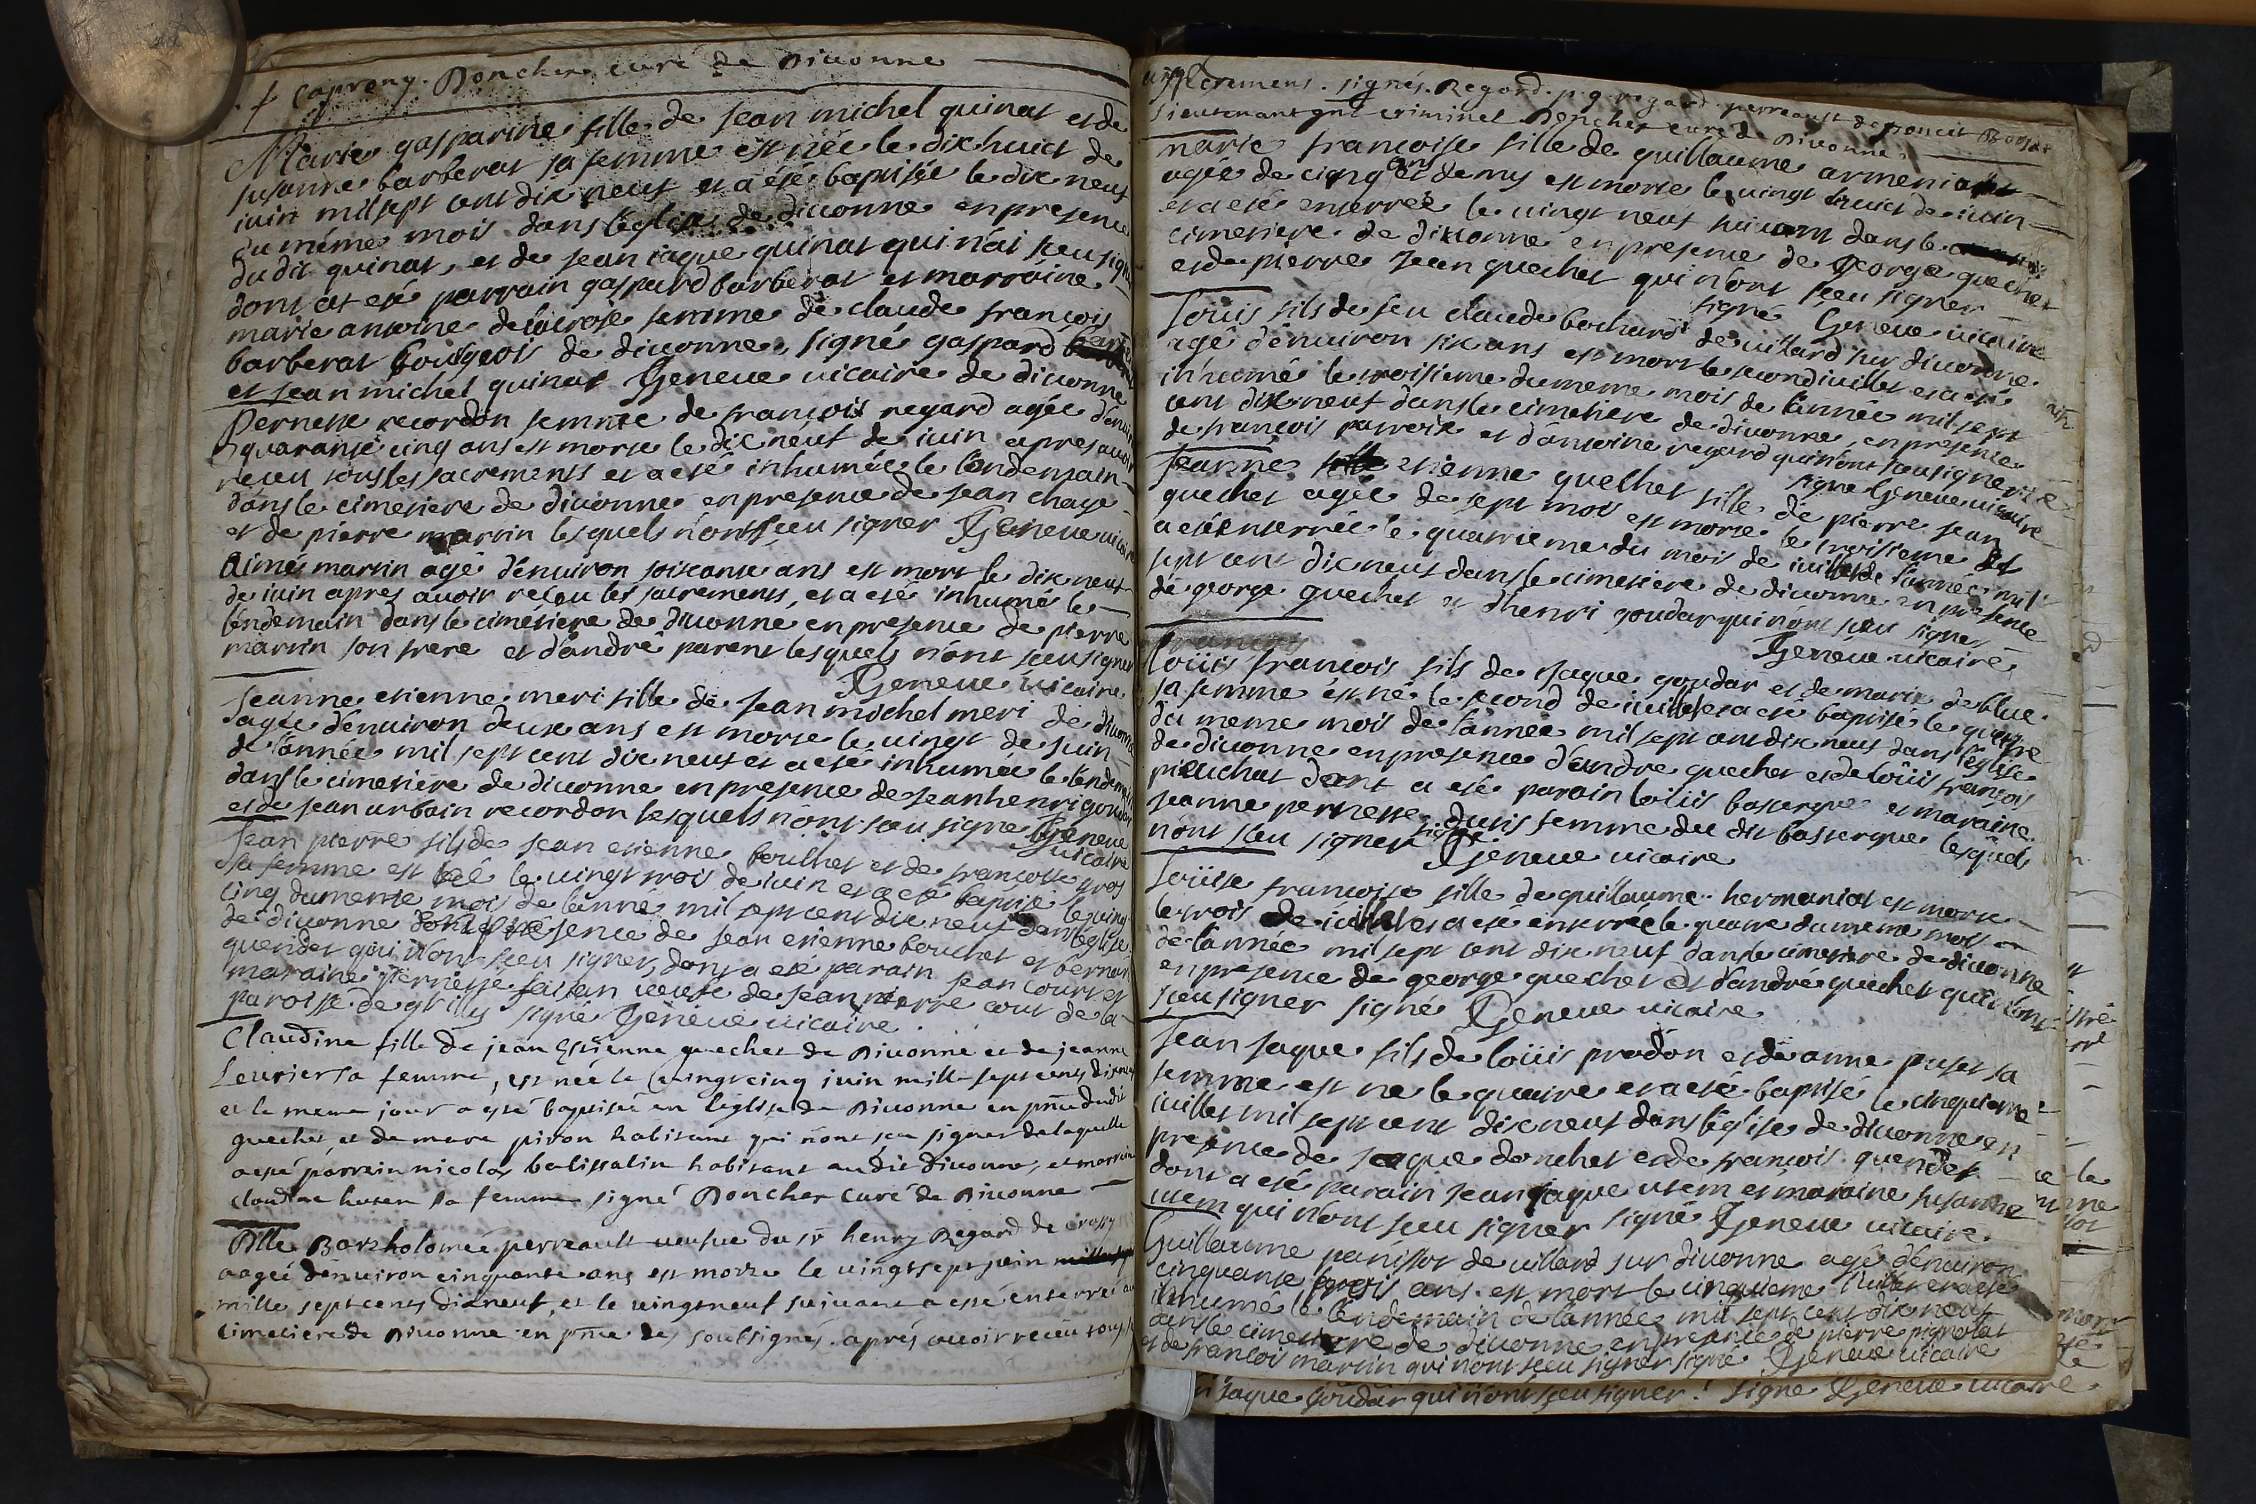 Capreny. Doncher curé de Diuonne
Marie gasparine fille de Jean michel quinat et de
susanne barberat sa femme est née le dix huict de
iuin mil sept cent dix neuf et a esté baptisée le dix neuf
du méme mois dans leglise de diuonne en presence
dudit quinat, et de Jean iaque quinat qui n'ai sceu signe
dont at esté parrain gaspard barberat et marraine
marie antoine delacrose femme de claude françois
barberat bourgeois de diuonne, signé gaspard
et Jean michel quinat Geneue uicaire de diuonne
Pernette recordon femme de françois regard agée d'enuiron
quarante cinq ans est morte le dix neuf de iuin apres auoir
receu tous les sacrements et a esté inhumée le lendemain
dans le cimetiere de diuonne en presence de Jean chaye
et de pierre martin lesquels n'ont sceu signer Geneue uicaire
Aimé martin agé d'enuiron soixante ans est mort le dix neuf
de iuin apres auoir receu les sacrements, et a esté inhumé le
lendemain dans le cimétiere de diuonne en presence de pierre
martin son frere et d'andré parent lesquels n'ont sceu signer
Geneue uicaire
Jeanne etienne meri fille de Jean michel meri de diuonne
agée d'enuiron deux ans est morte le uingt de Juin
de l'année mil sept cent dix neuf et a esté inhumée le lendemain
dans le cimetiere de diuonne en presence de Jean henri goudar
et de Jean urbain recordon lesquels n'ont sceu signe Geneue
uicaire
Jean pierre fils de Jean etienne boulhet et de francoise gros
sa femme est né le uingt trois de iuin et a esté baptisé le uingt
cinq du meme mois de l'anné mil sept cent dix neuf dans leglise
de diuonne presence de Jean etienne bouchet et bernar
quendet qui n'ont sceu signer, dont a esté parain Jean court et
maraine pernette falfan ueuue de Jean pierre cour de la
paroisse de grilly signé Geneue uicaire
Claudine fille de jean Estienne quechet de Diuonne et de jeanne
Leurier sa femme, est née le uingt cinq juin mille sept cents dixneuf
et le meme jour a esté baptisée en l'église de Diuonne en pñce dudit
quechet et de marc piron habitant qui n'ont sçu signer de laquelle
a esté parrain nicolas balissalin habitant au dit diuonne, et marraine
claudine huten sa femme signé Doncher curé de Diuonne
Dlle Bartholomée perreault ueufue du sr henry Regard de crassy
aagée denuiron cinquante ans est morte le uingt sept juin
mille sept cents dixneuf, et le uingtneuf suiuant a esté enterrée au
cimetiere de Diuonne en pñce des soubsignés aprés auoir receu tous
sacremens. signés. Regard. p. g. regard. perreault de poncit
lieutenant gnl criminel Doncher curé de Diuonne
marie françoise fille de guillaume armeniat
agée de cinq ans et demy est morte le uingt huict de iuin
et a esté enterrée le uingt neuf suiuant dans le
cimetiere de diuonne en presence de George quechet
et de pierre Jean quechet qui n'ont sceu signer
signé Geneue uicaire
Loüis fils de feu claude bochard de uillard sur diuonne
agé d'enuiron six ans est mort le second iuillet et a esté
inhumé le troisieme du meme mois de l'année mil sept
cent dix neuf dans le cimetiere de diuonne, en presence
de françois parroix et d'antoine regard qui n'ont sceu signer
signe Geneue uicaire
Jeanne etienne quelhet fille de pierre Jean
quechet agée de sept mois est morte le troisieme et
a esté enterrée le quatrieme du mois de iuillet de l'année mil
sept cent dix neuf dans le cimetiere de diuonne en presence
de george quechet et d'henri goudar qui n'ont sceu signer
Geneue uicaire
Loüis francois fils de Jaque goudar et de marie deblue
sa femme est né le second de iuillet et a esté baptisé le quatre
du meme mois de l'année mil sept cent dix neuf dans l'eglise
de diuonne en presence d'andre quechet et de loüis françois
piduchat dont a esté parain loüis bastergue et maraine
Jeanne pernette duris femme du dit bastergue lesquels
n'ont sceu signer signé Geneue uicaire
Loüise francoise fille de guillaume hermaniat est morte
le trois de iuillet et a esté enterrée le quatre du meme mois
de l'année mil sept cent dix neuf dans le cimetiere de diuonne
en presence de george quechet et d'andré quechet qui n'ont
sceu signer signé Geneue uicaire
Jean Jaque fils de loüis prodon et de anne puset sa
femme est né le quatre et a esté baptisé le cinquieme
iuillet mil sept cent dix neuf dans l'eglise de diuonne en
presence de Jaque donchet et de francois quendet
dont a esté parain Jean Jaque utem et maraine susanne
utem qui n'ont sceu signer signé Geneue uicaire
Guillaume panissot de uillard sur diuonne agé d'enuiron
cinquante trois ans est mort le cinquieme iuillet et a esté
inhumé le lendemain de l'année mil sept cent dix neuf
dans le cimetiere de diuonne en presence de pierre pignolet
et de francois martin qui n'ont sceu signer signé Geneue uicaire
Jaque goudar qui n'ont sceu signer signe Geneue uicaire